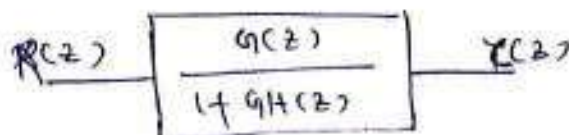 R(Z)
G(Z)
1+ GH(Z)
C(Z)